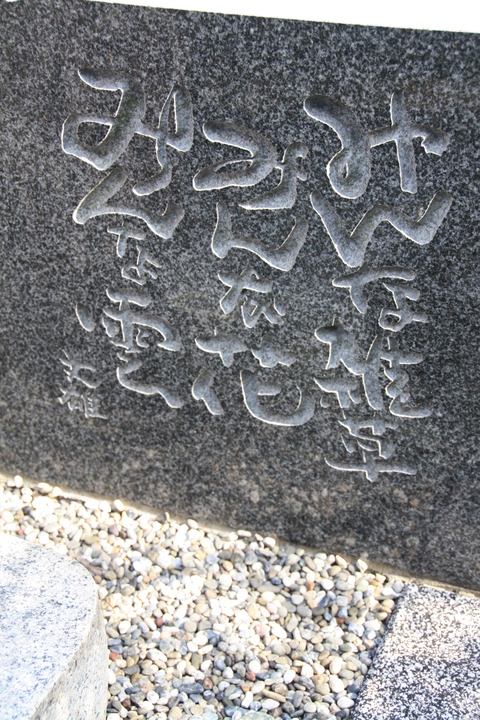 みんな雑草
みんな花
みんな雲